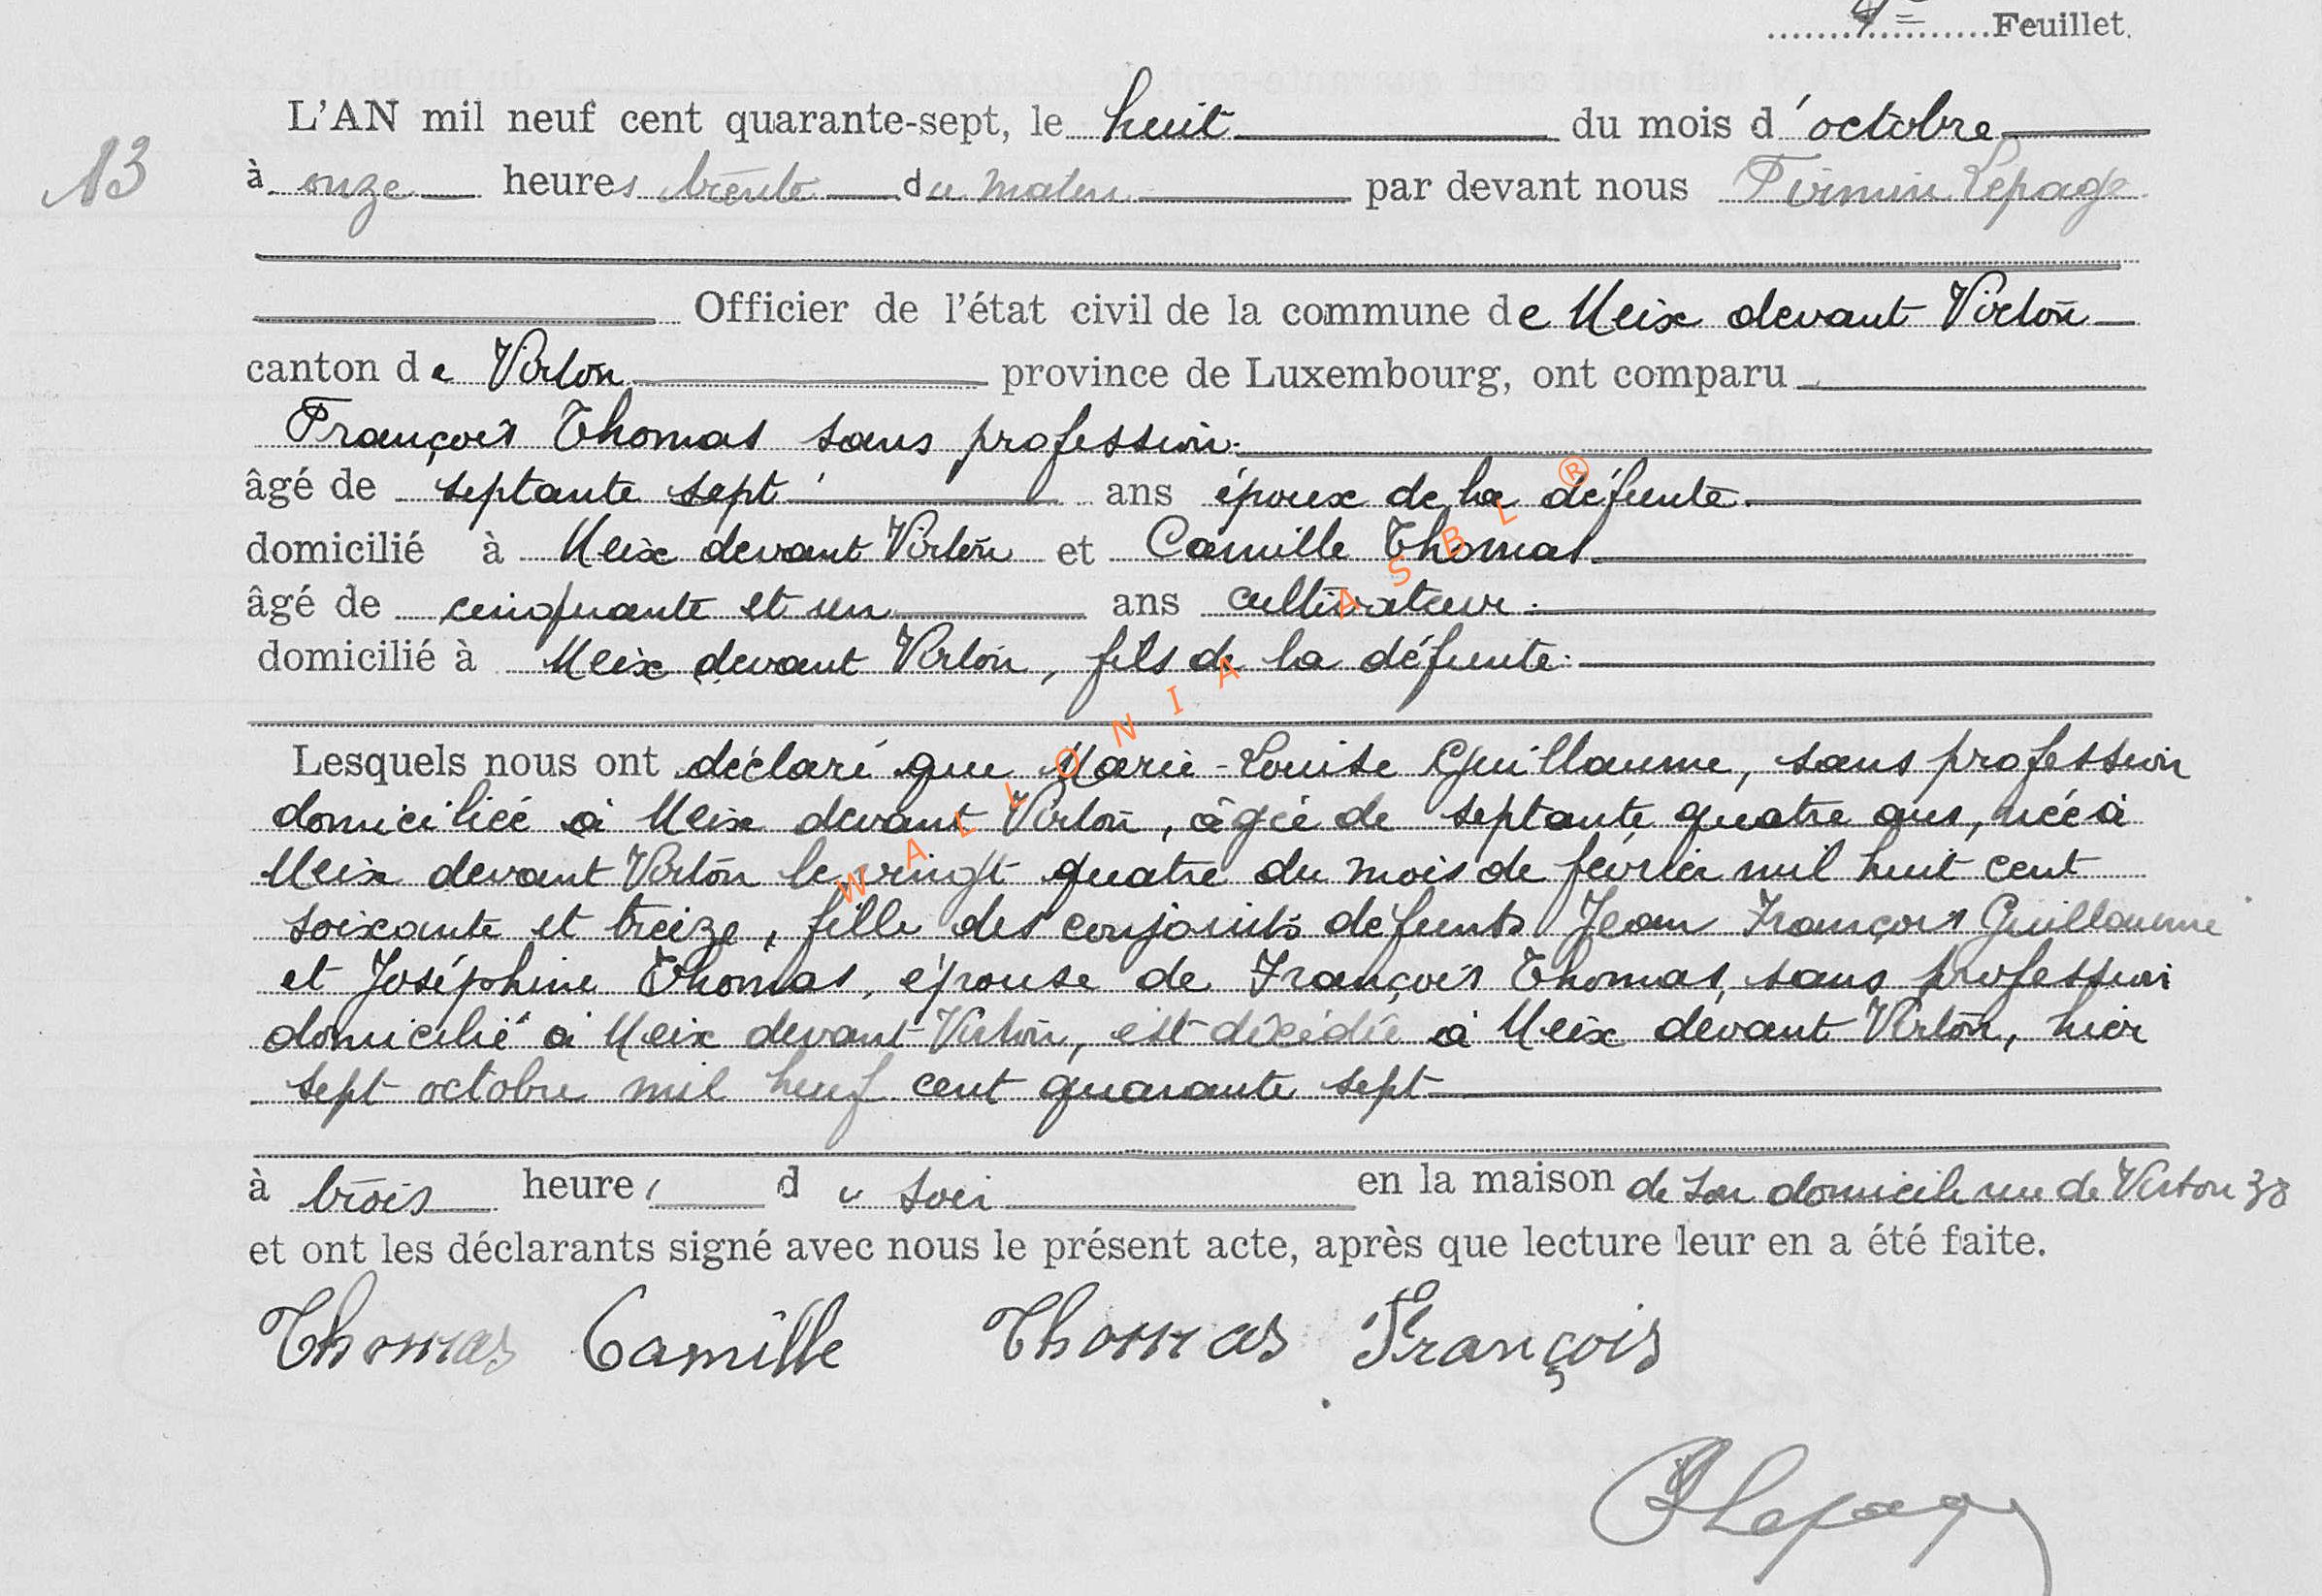 Feuillet.
L'AN mil neuf cent quarante-sept, le huit du mois d'octobre
13
à onze heures trente du matin par devant nous Firmin Lepage
Officier de l'état civil de la commune de Meix devant Virton
canton de Virton province de Luxembourg, ont comparu
François Thomas sans profession.
âgé de septante sept ans époux de la défunte.
domicilié à Meix devant Virton et Camille Thomas
âgé de cinquante et un ans cultivateur.
domicilié à Meix devant Virton, fils de la défunte.
Lesquels nous ont déclaré que Marie-Louise Guillaume, sans profession
domiciliée à Meix devant Virton, âgée de septante quatre ans, née à
Meix devant Virton le vingt quatre du mois de février mil huit cent
soixante et treize, fille des conjoints défunts Jean François Guillaume
et Joséphine Thomas, épouse de François Thomas, sans profession
domicilié à Meix devant Virton, est décédée à Meix devant Virton, hier
sept octobre mil neuf cent quarante sept
à trois heures du soir en la maison de son domicile rue de Virton 38
et ont les déclarants signé avec nous le présent acte, après que lecture leur en a été faite.
Thomas Camille Thomas François
FLepage
WALLONIA ASBL ®